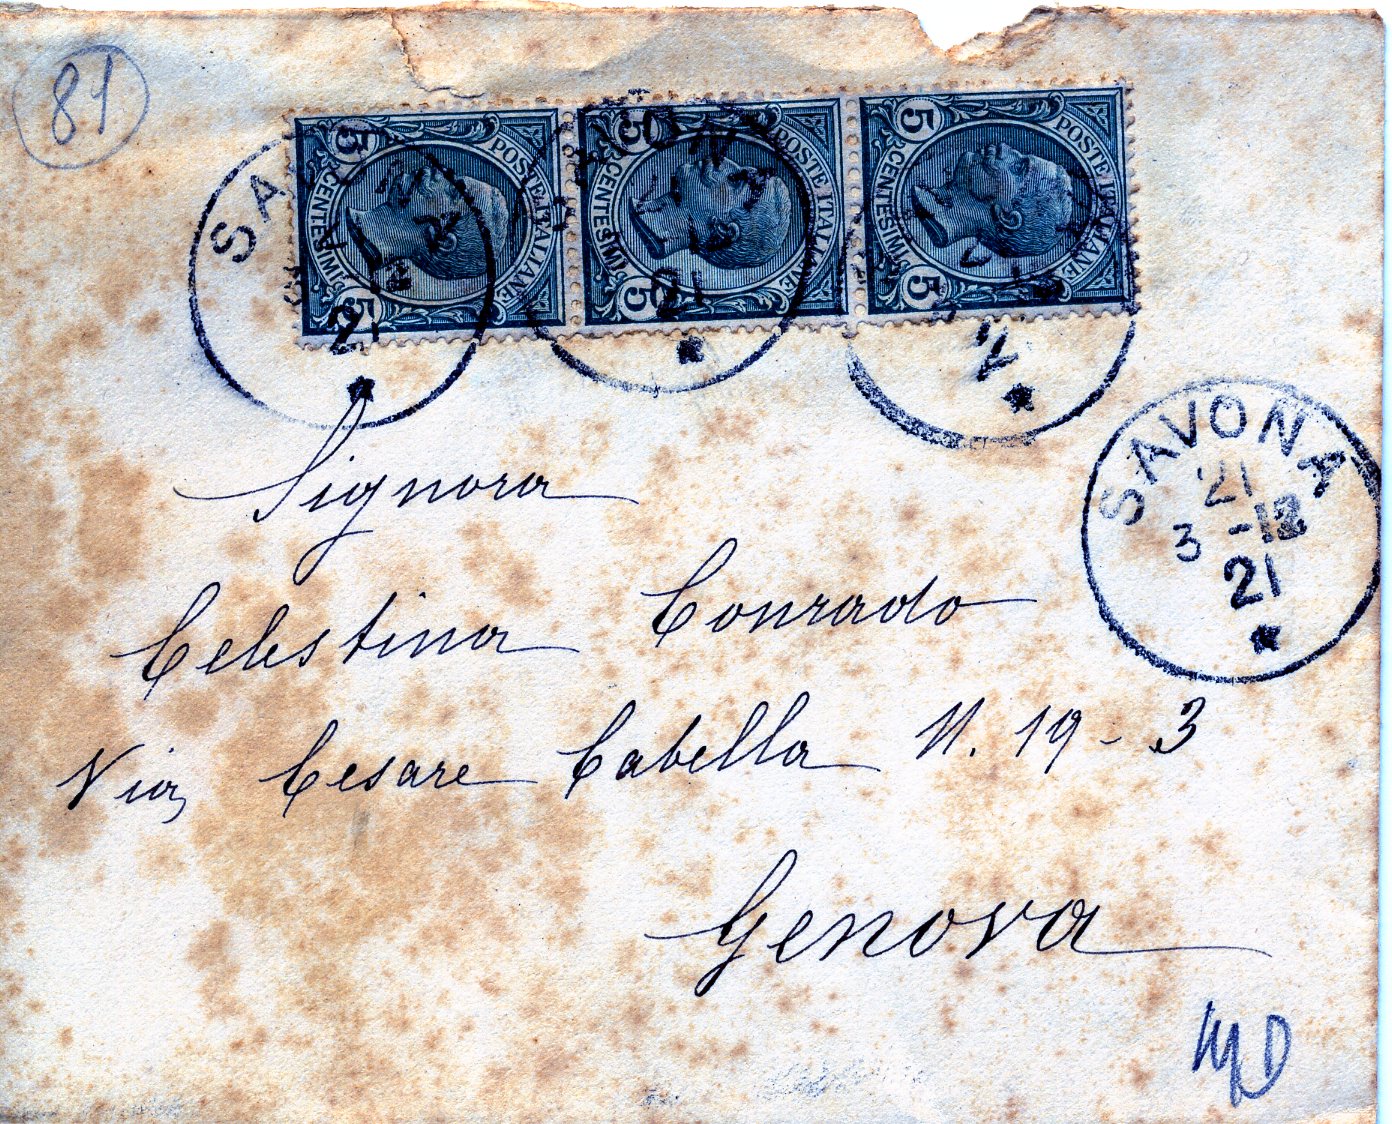 81
5 5
POSTE ITALIANE
CENTESIMI
5 5
POSTE ITALIANE
CENTESIMI
5 5
POSTE ITALIANE
CENTESIMI
SAVONA
'21
3 -12
21
Signora
Celestina Conrado
Via Cesare Cabella N. 19 - 3
Genova
MD